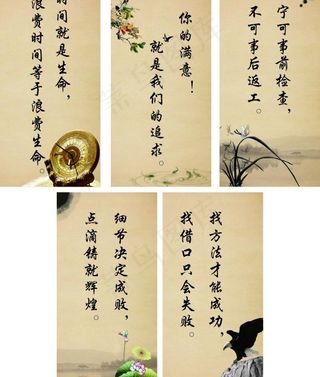 时间就是生命，
浪费时间等于浪费生命。
你的满意！
就是我们的追求。
宁可事前检查，
不可事后返工。
细节决定成败，
点滴铸就辉煌。
找方法才能成功，
找借口只会失败。